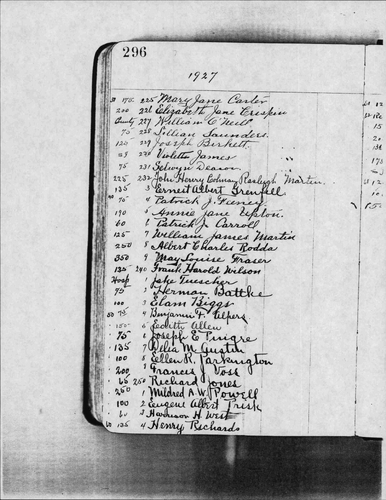 296
1927
175 225 Mary Jane Carter
200 226 Elizabeth Jane Crispin
County 227 William O'Neil
75 228 Lillian Saunders
125 229 Joseph Birkett
230 Violetta James
75 231 Selwyn Deacon
225 232 John Henry Raleigh Martin
135 3 Ernest Albert Grenfell
70 4 Patrick J. Feeney
190 5 Annie Jane Upton
60 6 Patrick J. Carroll
125 7 William James Martin
250 8 Albert Charles Rodda
350 9 May Louise Fraser
135 240 Frank Harold Wilson
Hosp 1 Jake Tuescher
75 2 Herman Battke
100 3 Elam Biggs
50 75 4 Benjamin F. Ulpers
5 Allen
75 6 Joseph E. Tuigre
135 7 Delia M. Gustin
100 8 Ellen R. Jarkington
200 9 Francis Voss
65 250 Richard Jones
250 1 Mildred A. W. Powell
100 2 Eugene Albert Trisk
60 3 Harrison H. West
135 4 Henry Richards